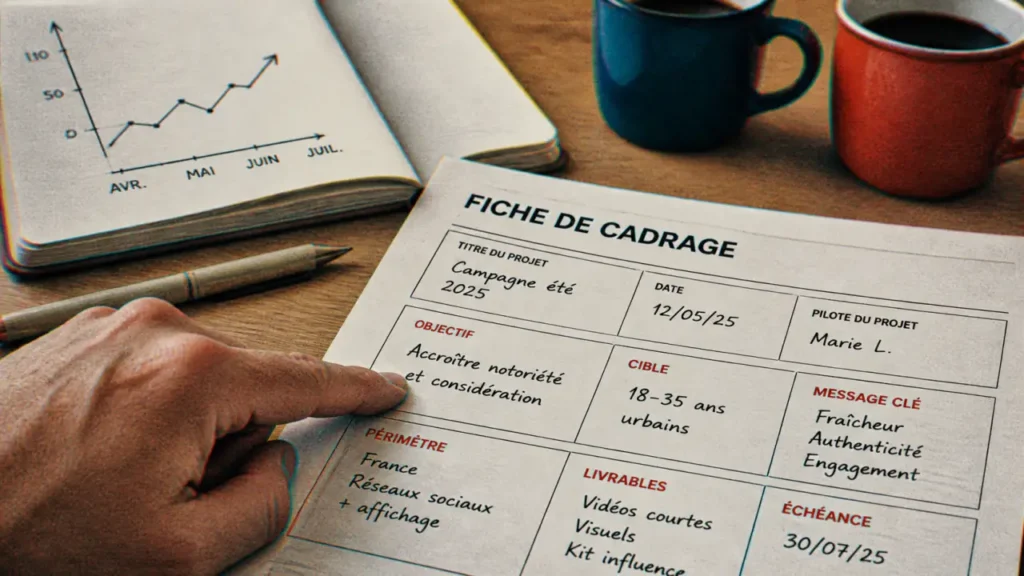 110
50
0
AVR.
MAI
JUIN
JUIL.
FICHE DE CADRAGE
TITRE DU PROJET
Campagne été
2025
DATE
12/05/25
PILOTE DU PROJET
Marie L.
OBJECTIF
Accroître notoriété
et considération
CIBLE
18-35 ans
urbains
MESSAGE CLÉ
Fraîcheur
Authenticité
Engagement
PÉRIMÈTRE
France
Réseaux sociaux
+ affichage
LIVRABLES
Vidéos courtes
Visuels
Kit influence
ÉCHÉANCE
30/07/25